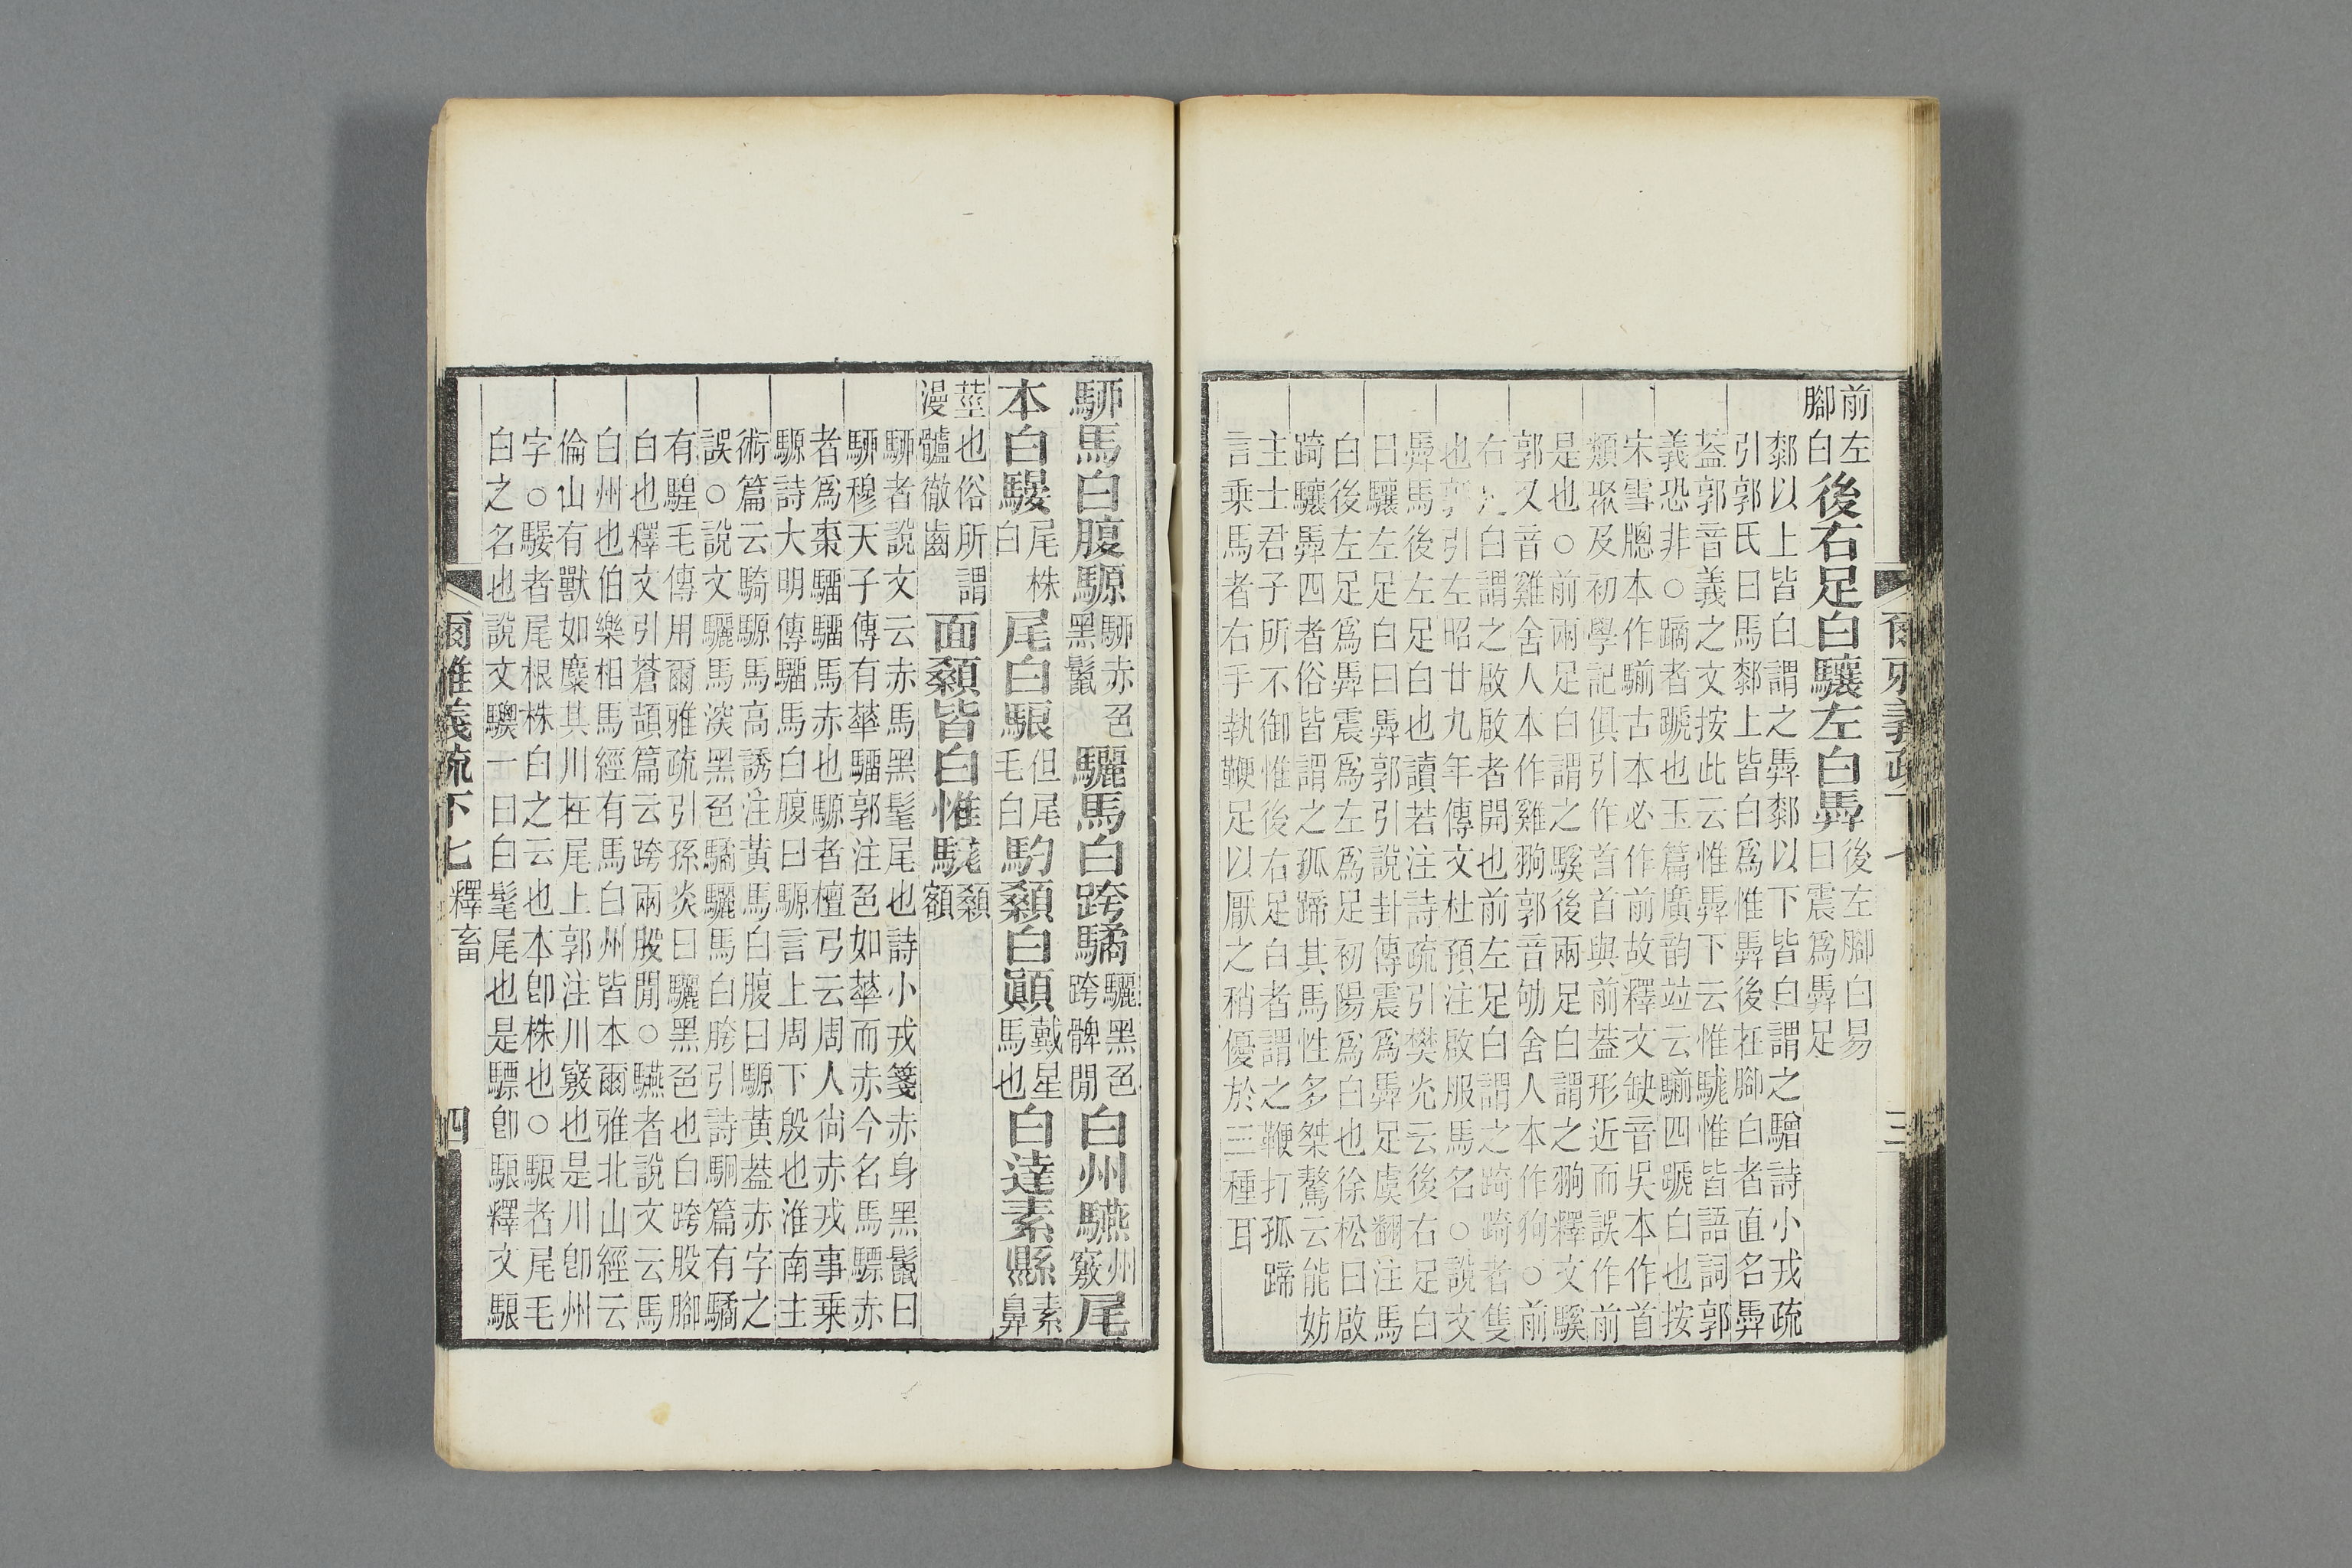 前左
腳白
後右足白驤左白馵
後左腳白易
曰震爲馵足
鄴以上皆白謂之馵鄴以下皆白謂之驓詩小戎疏
引郭氏曰馬鄴上皆白爲惟馵後在腳白者直名馵
葢郭音義之文按此云惟馵下云惟駹惟皆語詞郭
義恐非○蹢者蹏也玉篇廣韵竝云騚四蹏白也按
宋雪牕本作騚古本必作前故釋文缺音吳本作首
類聚及初學記俱引作首首與前葢形近而誤作前
是也○前兩足白謂之騱後兩足白謂之翑釋文騱
郭又音雞舍人本作雞翑郭音劬舍人本作狗○前
右足白謂之啟啟者開也前左足白謂之踦踦者隻
也郭引左昭廿九年傳文杜預注啟服馬名○說文
馵馬後左足白也讀若注詩疏引樊光云後右足白
曰驤左足白曰馵郭引說卦傳震爲馵足虞翻注馬
白後左足爲馵震爲左爲足初陽爲白也徐松曰啟
踦驤馵四者俗皆謂之孤蹄其馬性多桀驁云能妨
主士君子所不御惟後右足白者謂之鞭打孤蹄
言乘馬者右手執鞭足以厭之稍優於三種耳
爾雅義疏下七
三
駵馬白腹騵
駵赤色
黑鬣
驪馬白跨驈
驪黑色
跨髀閒
白州驠
州
竅
尾
本白騴
尾株
白
尾白駺
但尾
毛白
馰顙白顚
戴星
馬也
白達素縣
素
鼻
莖也俗所謂
漫髗徹齒
面顙皆白惟駹
顙
額
駵者說文云赤馬黑髦尾也詩小戎箋赤身黑鬣曰
駵穆天子傳有華騮郭注色如華而赤今名馬驃赤
者爲棗騮騮馬赤也騵者檀弓云周人尙赤戎事乘
騵詩大明傳騮馬白腹曰騵言上周下殷也淮南主
術篇云騎騵馬高誘注黃馬白腹曰騵黃葢赤字之
誤○說文驪馬深黑色驈驪馬白胯引詩駉篇有驈
有騜毛傳用爾雅疏引孫炎曰驪黑色也白跨股腳
白也釋文引蒼頡篇云跨兩股閒○驠者說文云馬
白州也伯樂相馬經有馬白州皆本爾雅北山經云
倫山有獸如麋其川在尾上郭注川竅也是川卽州
字○騴者尾根株白之云也本卽株也○駺者尾毛
白之名也說文驥一曰白髦尾也是驃卽駺釋文駺
爾雅義疏下七
釋畜
四